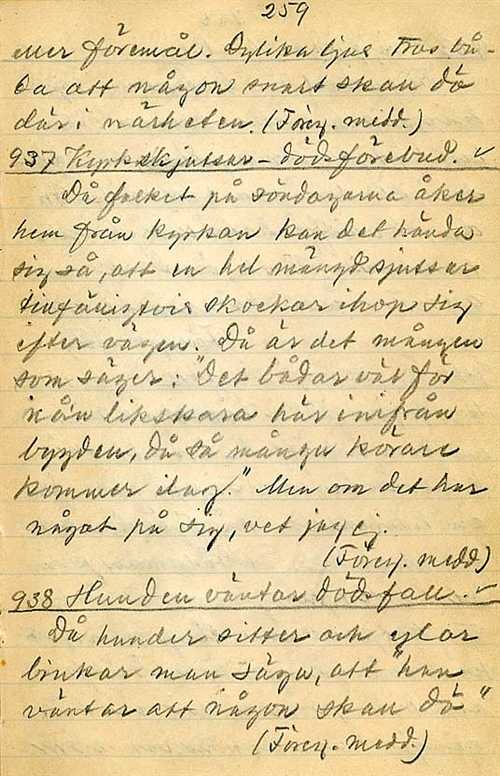 259
eller föremål. Dylika ljus tros bå-
da att någon snart skall dö
där i närheten. (Föreg. medd.)
937 Kyrkskjutsar - dödsförebud. ✓
Då folket på söndagarna åker
hem från kyrkan kan det hända
sig så, att en hel mängd sjutsar
tillfälligtvis skockar ihop sig
efter vägen. Då är det mången
som säger: "Det bådar väl för
nån likskara här inifrån
bygden, då så många körare
kommer idag." Men om det har
något på sig, vet jag ej.
(Föreg. medd.)
938 Hunden väntar dödsfall. ✓
Då hunder sitter och ylar
brukar man säga, att "han
väntar att någon skall dö"
(Föreg. medd.)